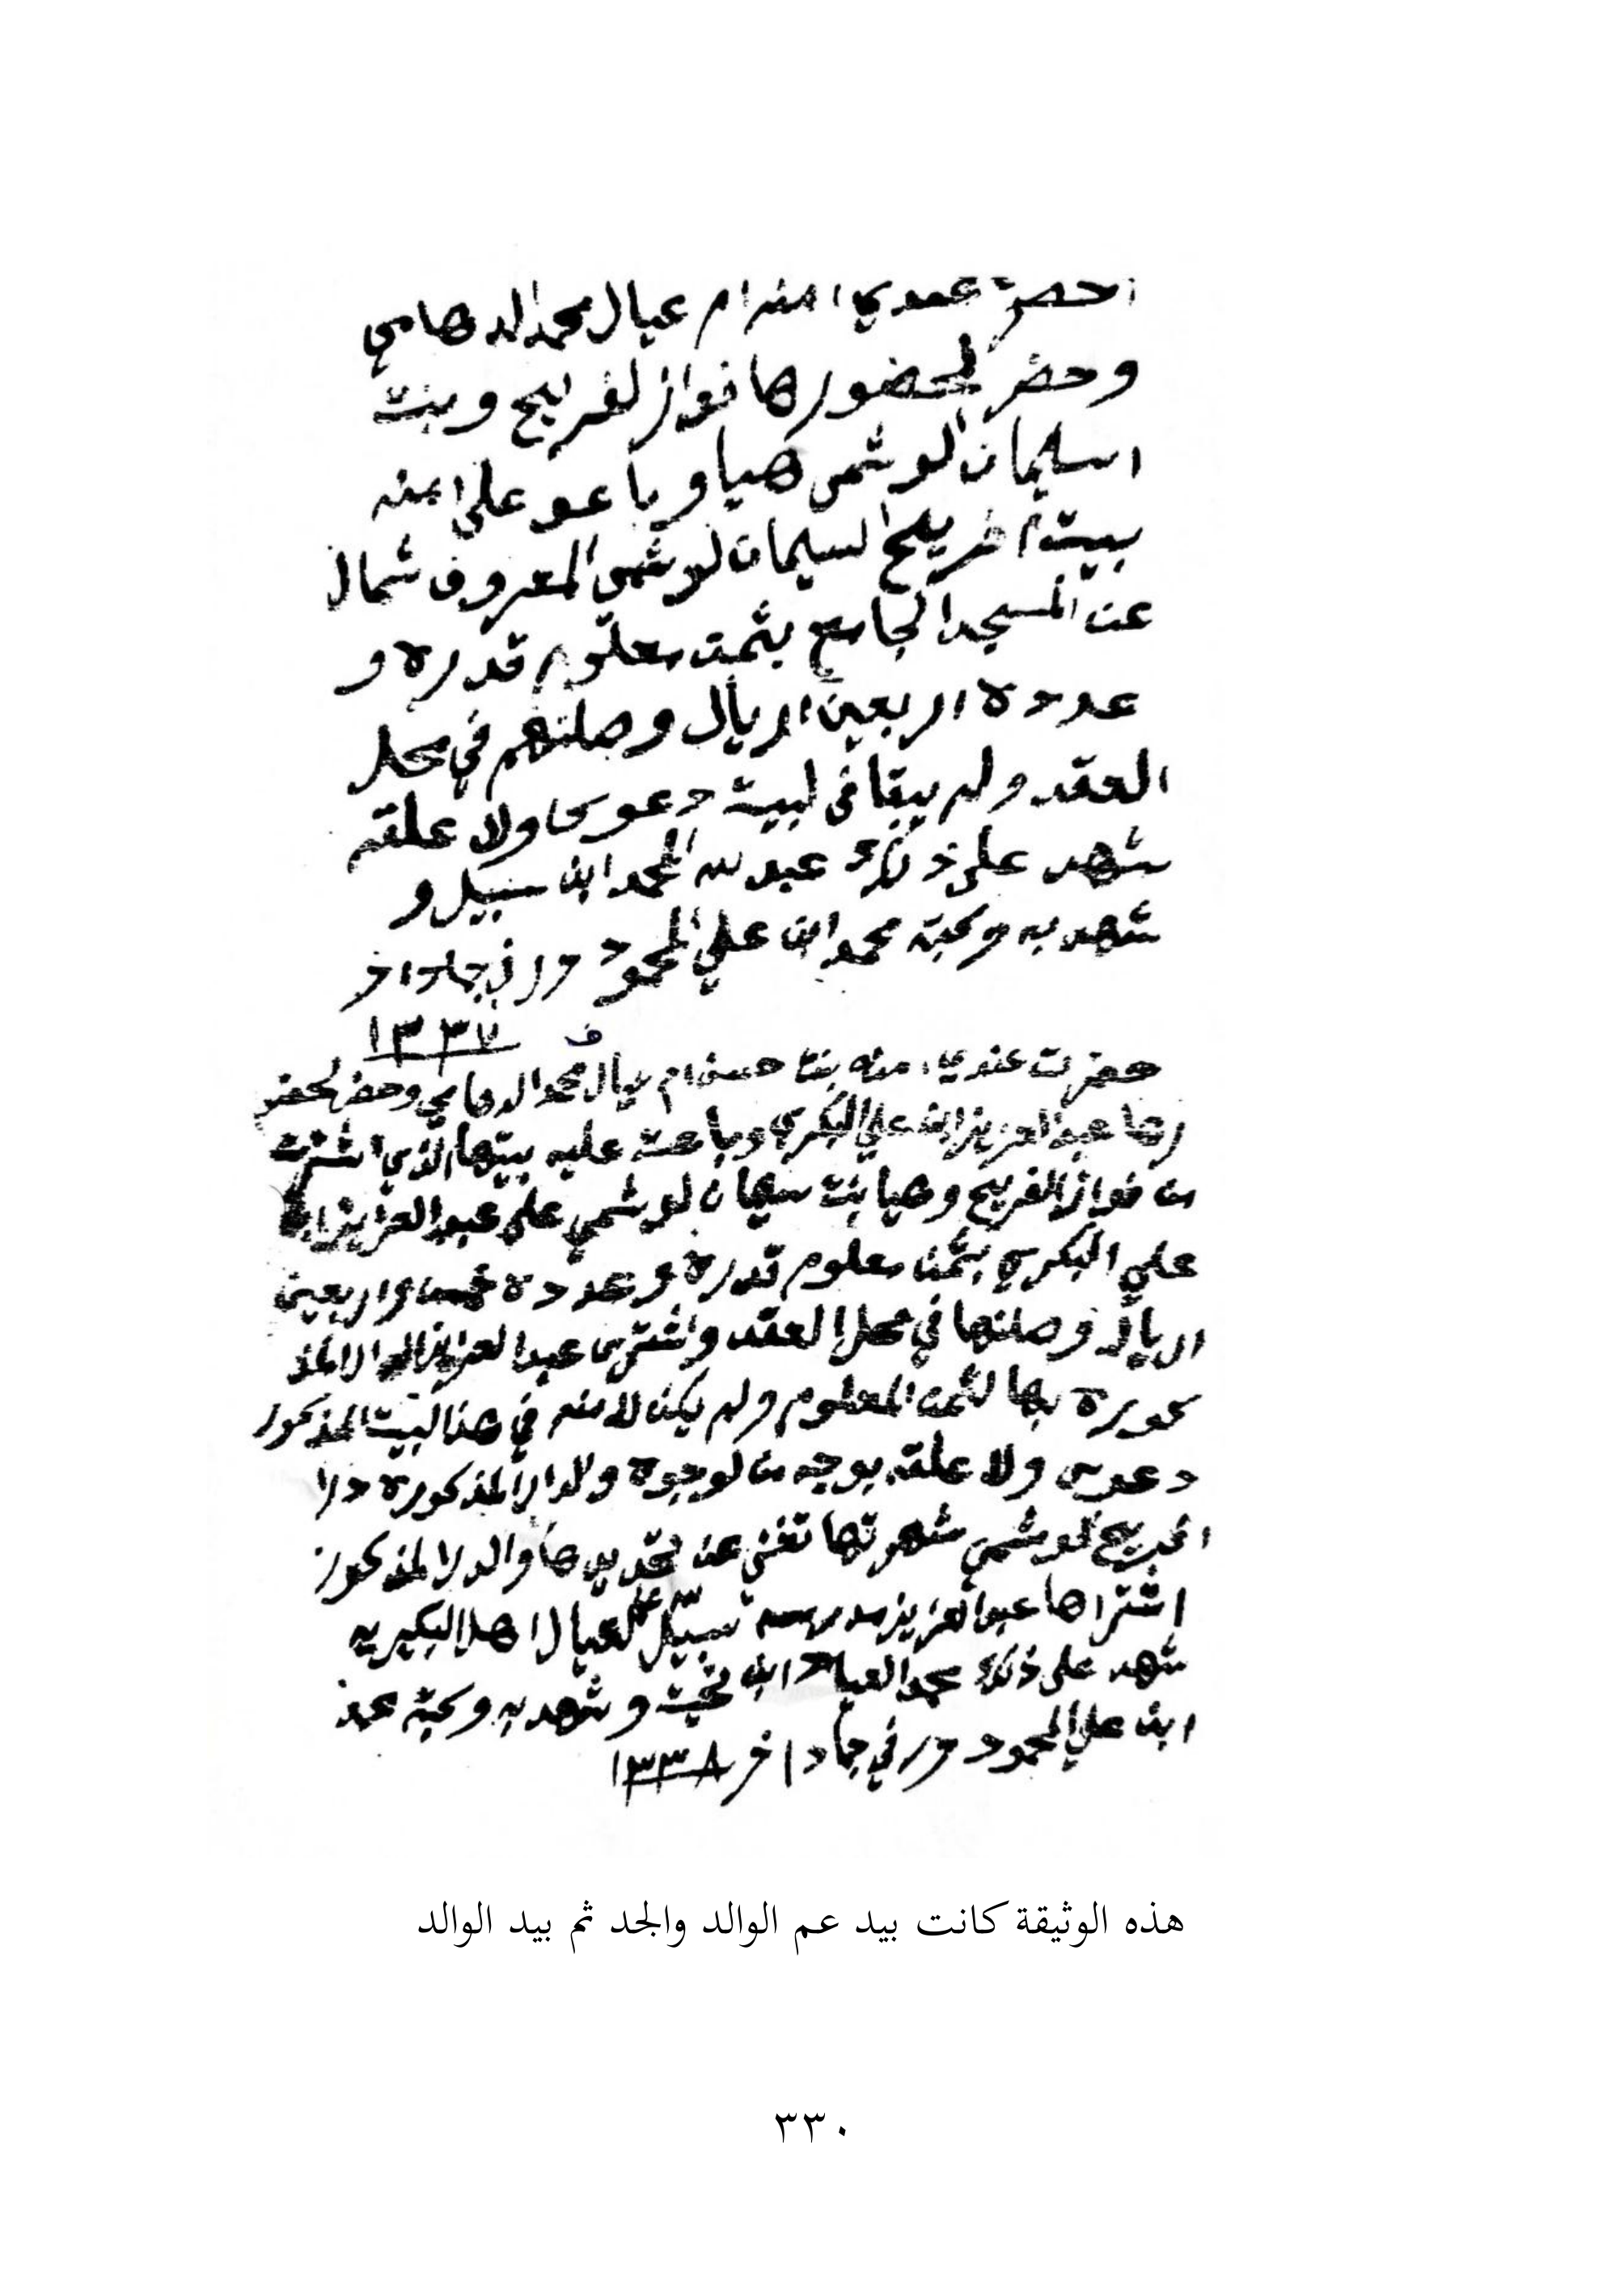 احضرت عندي امنه ام عيال محمد الدهامي
وحضر لحضورها فواز لفريح وبنت
اسليمان الوشمي هيا وباعو على امنه
بيت السليمان لوشمي المعروف شمال
عن المسجد الجامع بثمن معلوم قدره و
عدده اربعين اريال وصلتهم في محل
العقد ولم يبقا في لبيت دعوى ولا علقه
شهد على ذلك عبد لله المحمد ابن سبيل و
شهد به وكتبه محمد ابن علي المحمود حرر في جماد اخر
١٣٣٧
حضرت عندي امنه بنت ام عيال محمد الدهامي وحضر لحضو
رها عبد العزيز ابن علي البكري وباعت عليه بيتها الذي اشترت
من فواز الفريح وهيا بنت سليمان لوشمي على عبد العزيز ابن
علي البكري بثمن معلوم قدره وعدده خمس واربعين
اريال وصلتها في محل العقد واشترى عبد العزيز الدار المذ
كوره بها لثمن المعلوم ولم يكن لامنه في هذا لبيت المذكور
دعوى ولا علقه بوجه من لوجوه ولدار المذكوره دار
لوشمي شهرتها تغني عن تحديدها والدار المذكور
اشتراها عبد العزيز سبيل على لعيال اهل البكيريه
شهد على ذلك محمد ابن وشهد به وكتبه محمد
ابن علي المحمود حرر في جماد اخر ١٣٣٨
هذه الوثيقة كانت بيد عم الوالد والجد ثم بيد الوالد
٣٣٠